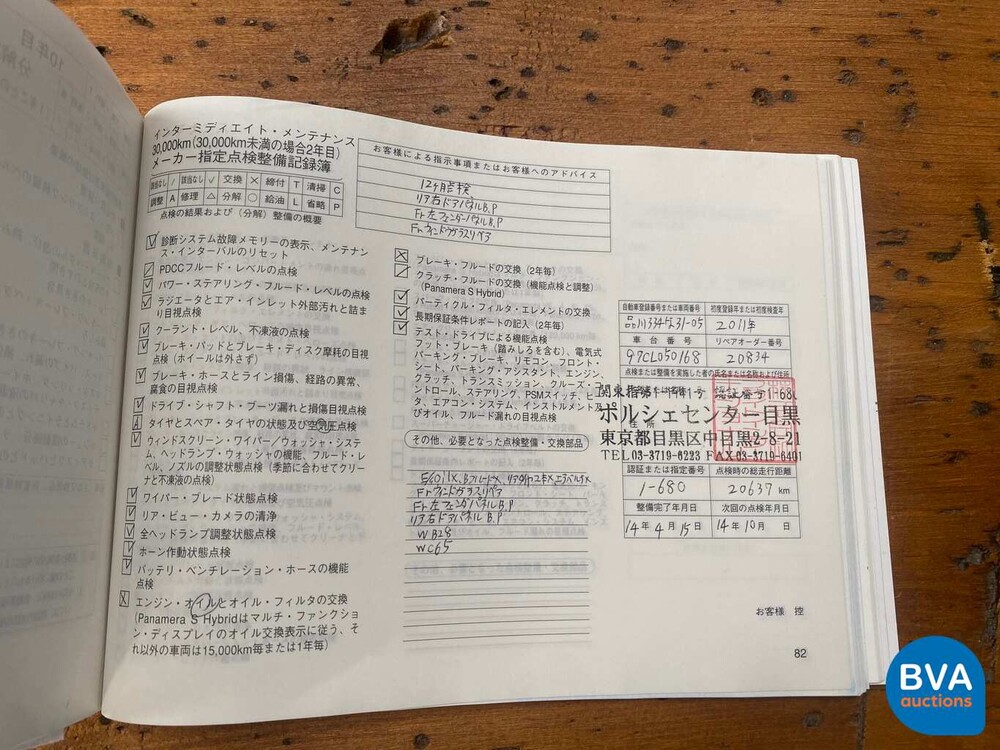 インターミディエイト・メンテナンス
30,000km(30,000km未満の場合2年目)
メーカー指定点検整備記録簿
該当なし / 該当なし ✓ 交換 × 締付 T 清掃 C
調整 A 修理 △ 分解 ○ 給油 L 省略 P
点検の結果および(分解)整備の概要
診断システム故障メモリーの表示、メンテナン
ス・インターバルのリセット
PDCCフルード・レベルの点検
パワー・ステアリング・フルード・レベルの点検
ラジエータとエア・インレット外部汚れと詰ま
り目視点検
クーラント・レベル、不凍液の点検
ブレーキ・パッドとブレーキ・ディスク摩耗の目視
点検(ホイールは外さず)
ブレーキ・ホースとライン損傷、経路の異常、
腐食の目視点検
ドライブ・シャフト・ブーツ漏れと損傷目視点検
A タイヤとスペア・タイヤの状態及び空気圧点検
ウィンドスクリーン・ワイパー/ウォッシャ・システ
ム、ヘッドランプ・ウォッシャの機能、フルード・レ
ベル、ノズルの調整状態点検(季節に合わせてクリー
ナと不凍液の点検)
ワイパー・ブレード状態点検
リア・ビュー・カメラの清浄
全ヘッドランプ調整状態点検
ホーン作動状態点検
バッテリ・ベンチレーション・ホースの機能
点検
エンジン・オイルとオイル・フィルタの交換
(Panamera S Hybridはマルチ・ファンクショ
ン・ディスプレイのオイル交換表示に従う、そ
れ以外の車両は15,000km毎または1年毎)
お客様による指示事項またはお客様へのアドバイス
12ヶ月点検
リア右ドアパネルB.P
Fr左フェンダーパネルB.P
Frウィンドウガラスリペア
ブレーキ・フルードの交換(2年毎)
クラッチ・フルードの交換(機能点検と調整)
(Panamera S Hybrid)
パーティクル・フィルタ・エレメントの交換
長期保証条件レポートの記入(2年毎)
テスト・ドライブによる機能点検
フット・ブレーキ(踏みしろを含む)、電気式
パーキング・ブレーキ、リモコン、フロント・
シート、パーキング・アシスタント、エンジン、
クラッチ、トランスミッション、クルーズ・コン
トロール、ステアリング、PSMスイッチ、ヒー
タ、エアコン・システム、インストルメント及
びオイル、フルード漏れの目視点検
その他、必要となった点検整備・交換部品
Frウィンドウガラスリペア
Fr左フェンダパネルB.P
リア右ドアパネルB.P
WB28
WC65
自動車登録番号または車両番号 初度登録年または初度検査年
品川334な31-05 2011年
車台番号 リペアオーダー番号
97CL050168 20834
点検または整備を実施した者の氏名または名称および住所
関東指第1-1941号 認証番号1-680
ポルシェセンター目黒
住所
東京都目黒区中目黒2-8-21
TEL03-3719-6223 FAX03-3719-6401
認証または指定番号 点検時の総走行距離
1-680 20637 km
整備完了年月日 次回の点検年月日
14年4月15日 14年10月 日
お客様 控
82
BVA
auctions